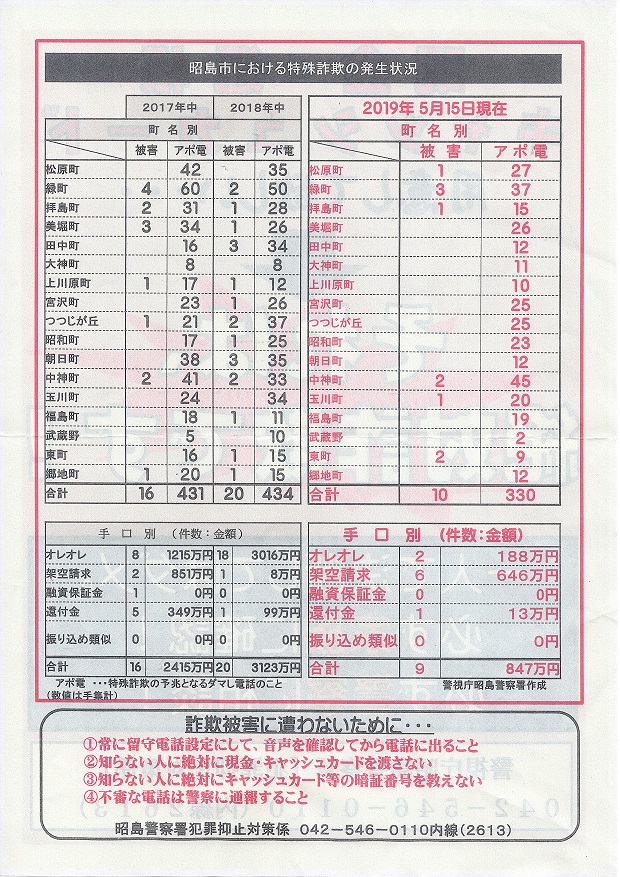 昭島市における特殊詐欺の発生状況
2017年中 2018年中
町 名 別
被害 アポ電 被害 アポ電
松原町 42 35
緑町 4 60 2 50
拝島町 2 31 1 28
美堀町 3 34 1 26
田中町 16 3 34
大神町 8 8
上川原町 1 17 1 12
宮沢町 23 1 26
つつじが丘 1 21 2 37
昭和町 17 1 25
朝日町 38 3 35
中神町 2 41 2 33
玉川町 24 34
福島町 18 1 11
武蔵野 5 10
東町 16 1 15
郷地町 1 20 1 15
合計 16 431 20 434
2019年 5月15日現在
町 名 別
被 害 アポ電
松原町 1 27
緑町 3 37
拝島町 1 15
美堀町 26
田中町 12
大神町 11
上川原町 10
宮沢町 25
つつじが丘 25
昭和町 23
朝日町 12
中神町 2 45
玉川町 1 20
福島町 19
武蔵野 2
東町 2 9
郷地町 12
合計 10 330
手 口 別 (件数:金額)
オレオレ 8 1215万円 18 3016万円
架空請求 2 851万円 1 8万円
融資保証金 1 0円 0 0円
還付金 5 349万円 1 99万円
振り込め類似 0 0円 0 0円
合計 16 2415万円 20 3123万円
手 口 別 (件数:金額)
オレオレ 2 188万円
架空請求 6 646万円
融資保証金 0 0円
還付金 1 13万円
振り込め類似 0 0円
合計 9 847万円
アポ電 ・・・特殊詐欺の予兆となるダマし電話のこと
(数値は手集計)
警視庁昭島警察署作成
詐欺被害に遭わないために・・・
①常に留守電話設定にして、音声を確認してから電話に出ること
②知らない人に絶対に現金・キャッシュカードを渡さない
③知らない人に絶対にキャッシュカード等の暗証番号を教えない
④不審な電話は警察に通報すること
昭島警察署犯罪抑止対策係 042-546-0110内線(2613)